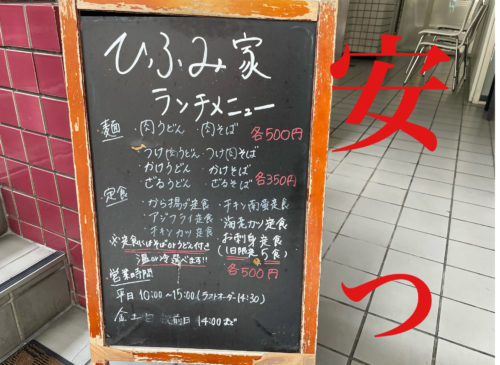 ひふみ家
ランチメニュー
・麺 ・肉うどん ・肉そば 各500円
つけ肉うどん つけ肉そば
かけうどん かけそば
ざるうどん ざるそば 各350円
・定食 ・から揚げ定食 ・チキン南蛮定食
・アジフライ定食 ・海老カツ定食
・チキンカツ定食 ・お刺身定食
※定食にはそばorうどん付き (1日限定5食)
温or冷選べます!! 各500円
・営業時間
平日 10:00〜15:00(ラストオーダー14:30)
金土日 前日 14:00まで
安
っ